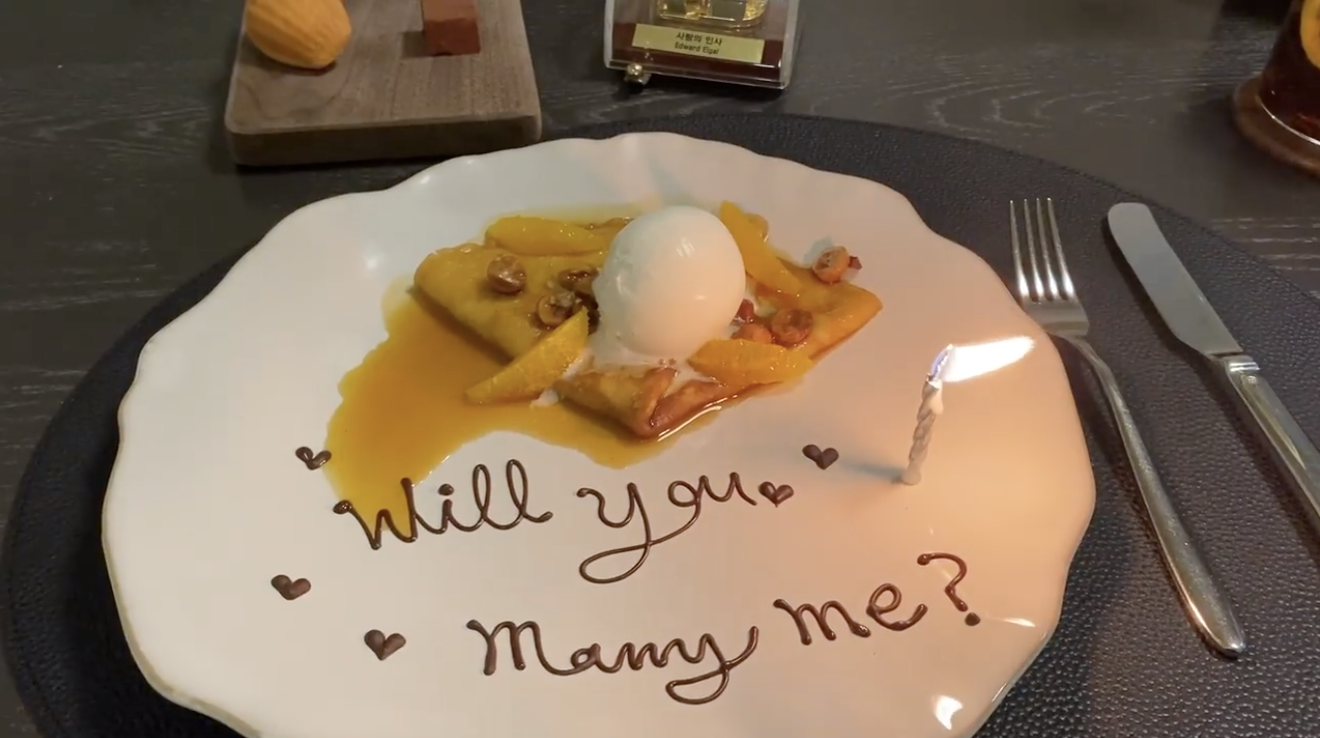 사랑의 인사
Edward Elgar
Will you
Marry me?